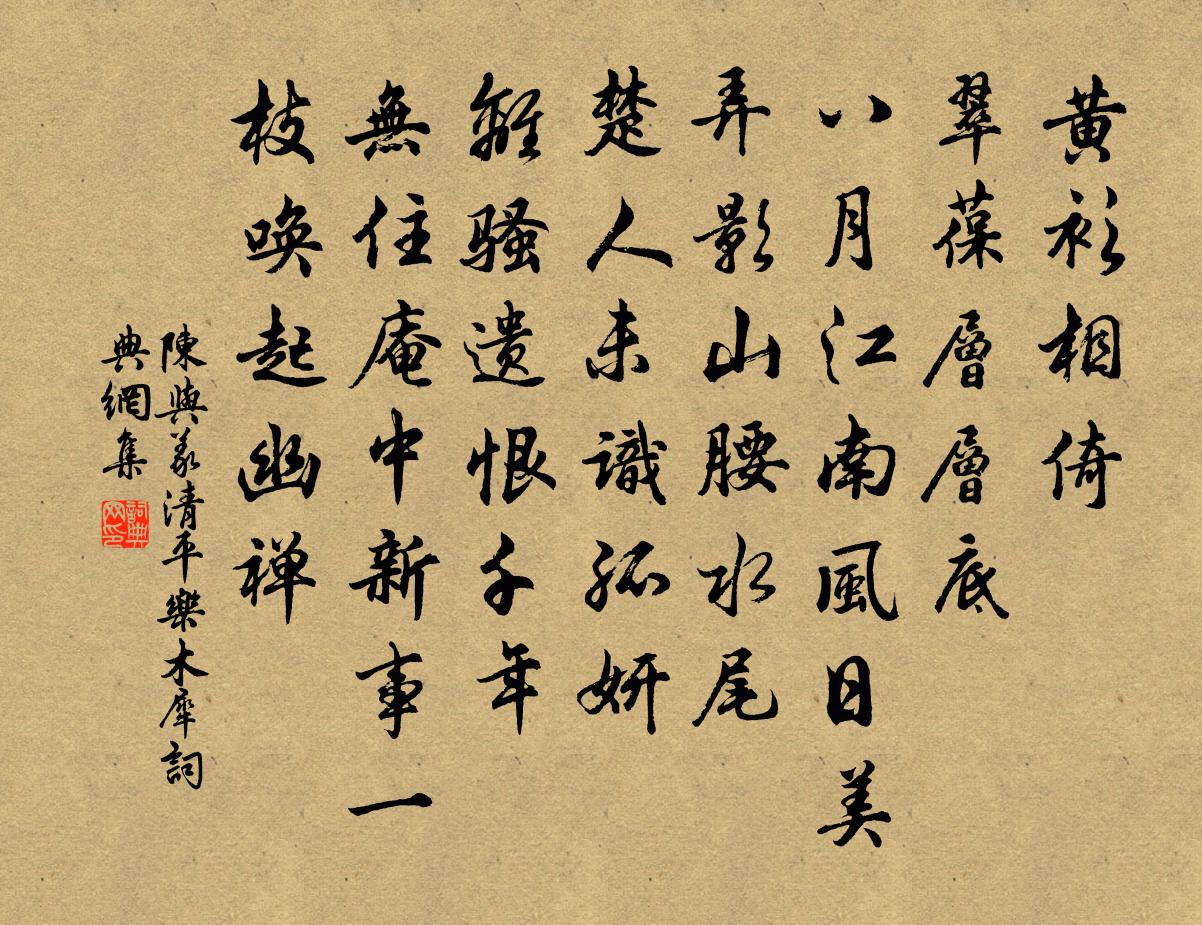 黃衫相倚
翠葆層層底
八月江南風日美
弄影山腰水尾
楚人未識孤妍
離騷遺恨千年
無住庵中新事一
枝喚起幽禅
陳與義清平樂木犀詞
典網集
詞典网印